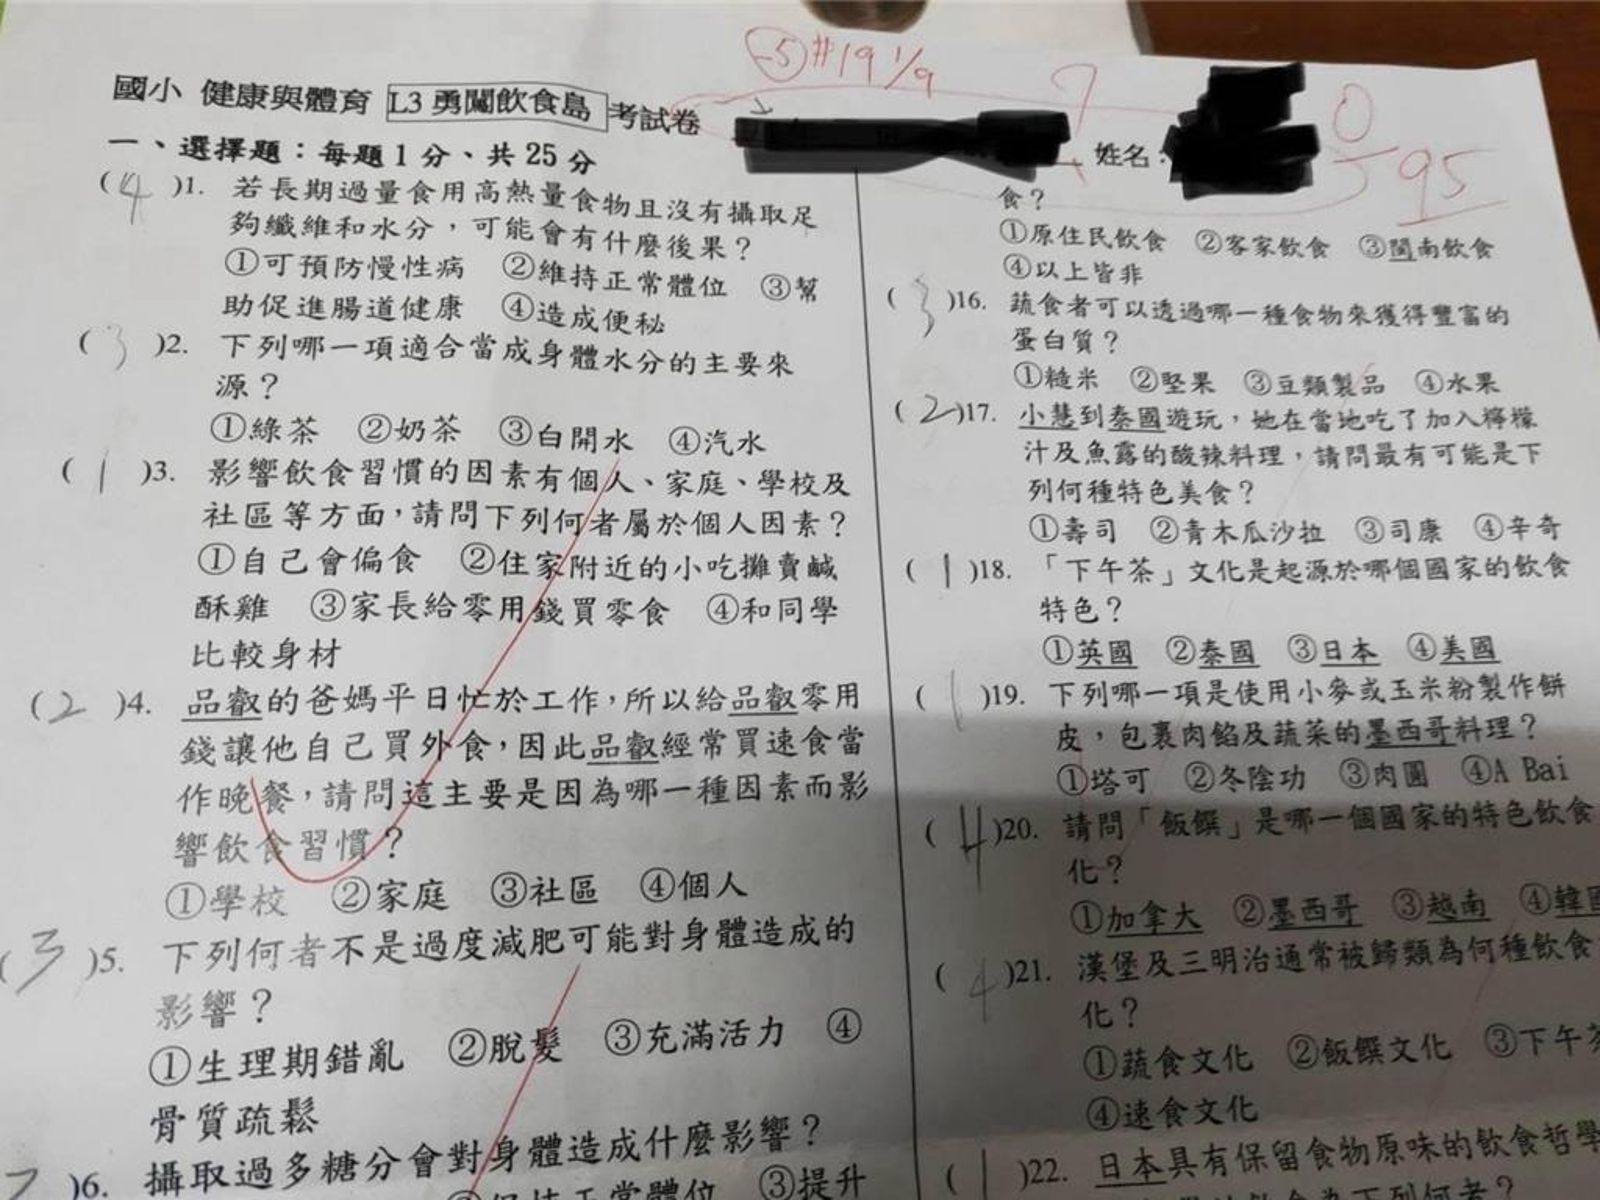 -5 #19 1/9
95
國小 健康與體育 L3 勇闖飲食島 考試卷
姓名：
一、選擇題：每題1分、共25分
( 4 )1. 若長期過量食用高熱量食物且沒有攝取足
夠纖維和水分，可能會有什麼後果？
①可預防慢性病 ②維持正常體位 ③幫
助促進腸道健康 ④造成便秘
( 3 )2. 下列哪一項適合當成身體水分的主要來
源？
①綠茶 ②奶茶 ③白開水 ④汽水
( 1 )3. 影響飲食習慣的因素有個人、家庭、學校及
社區等方面，請問下列何者屬於個人因素？
①自己會偏食 ②住家附近的小吃攤賣鹹
酥雞 ③家長給零用錢買零食 ④和同學
比較身材
( 2 )4. 品叡的爸媽平日忙於工作，所以給品叡零用
錢讓他自己買外食，因此品叡經常買速食當
作晚餐，請問這主要是因為哪一種因素而影
響飲食習慣？
①學校 ②家庭 ③社區 ④個人
( 3 )5. 下列何者不是過度減肥可能對身體造成的
影響？
①生理期錯亂 ②脫髮 ③充滿活力 ④
骨質疏鬆
)6. 攝取過多糖分會對身體造成什麼影響？
正常體位 ③提升
食？
①原住民飲食 ②客家飲食 ③閩南飲食
④以上皆非
( 3 )16. 蔬食者可以透過哪一種食物來獲得豐富的
蛋白質？
①糙米 ②堅果 ③豆類製品 ④水果
( 2 )17. 小慧到泰國遊玩，她在當地吃了加入檸檬
汁及魚露的酸辣料理，請問最有可能是下
列何種特色美食？
①壽司 ②青木瓜沙拉 ③司康 ④辛奇
( 1 )18. 「下午茶」文化是起源於哪個國家的飲食
特色？
①英國 ②泰國 ③日本 ④美國
( 1 )19. 下列哪一項是使用小麥或玉米粉製作餅
皮，包裹肉餡及蔬菜的墨西哥料理？
①塔可 ②冬陰功 ③肉圓 ④A Bai
( 4 )20. 請問「飯饌」是哪一個國家的特色飲食
化？
①加拿大 ②墨西哥 ③越南 ④韓國
( 4 )21. 漢堡及三明治通常被歸類為何種飲食
化？
①蔬食文化 ②飯饌文化 ③下午茶
④速食文化
( 1 )22. 日本具有保留食物原味的飲食哲學